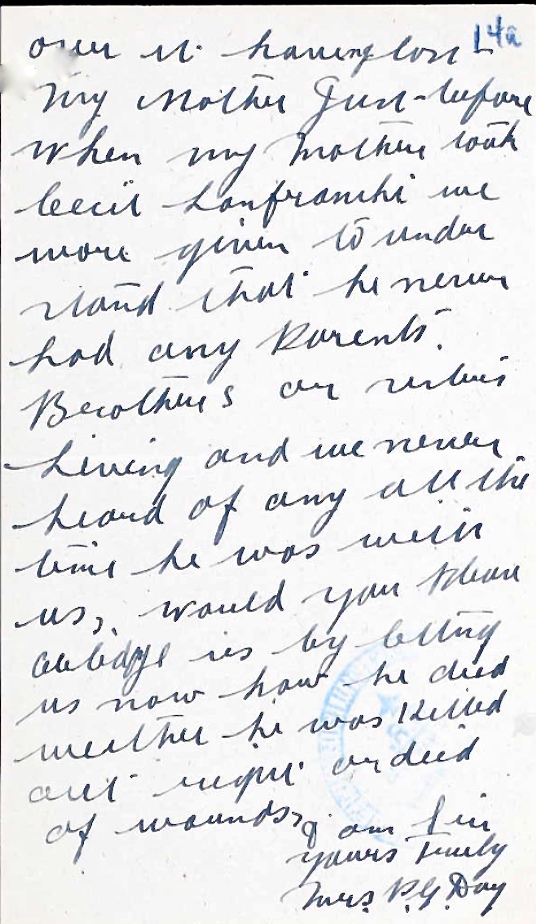 over it having lost
14a
my Mother Just-before
when my Mother took
Cecil Lanfranchi we
were given to under
stand that he never
had any Parents.
Brothers or sisters
Living and we never
heard of any all the
time he was with
us, would you please
oblidge us by letting
us now how he died
weather he was killed
out right or died
of wounds, I am Sir
yours Truly
Mrs. P.G. Day